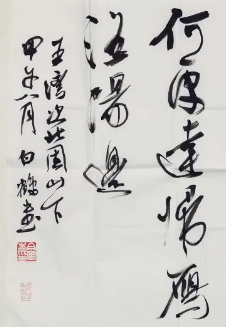 何處達歸雁
洛陽邊
王灣次北固山下
甲午八月白